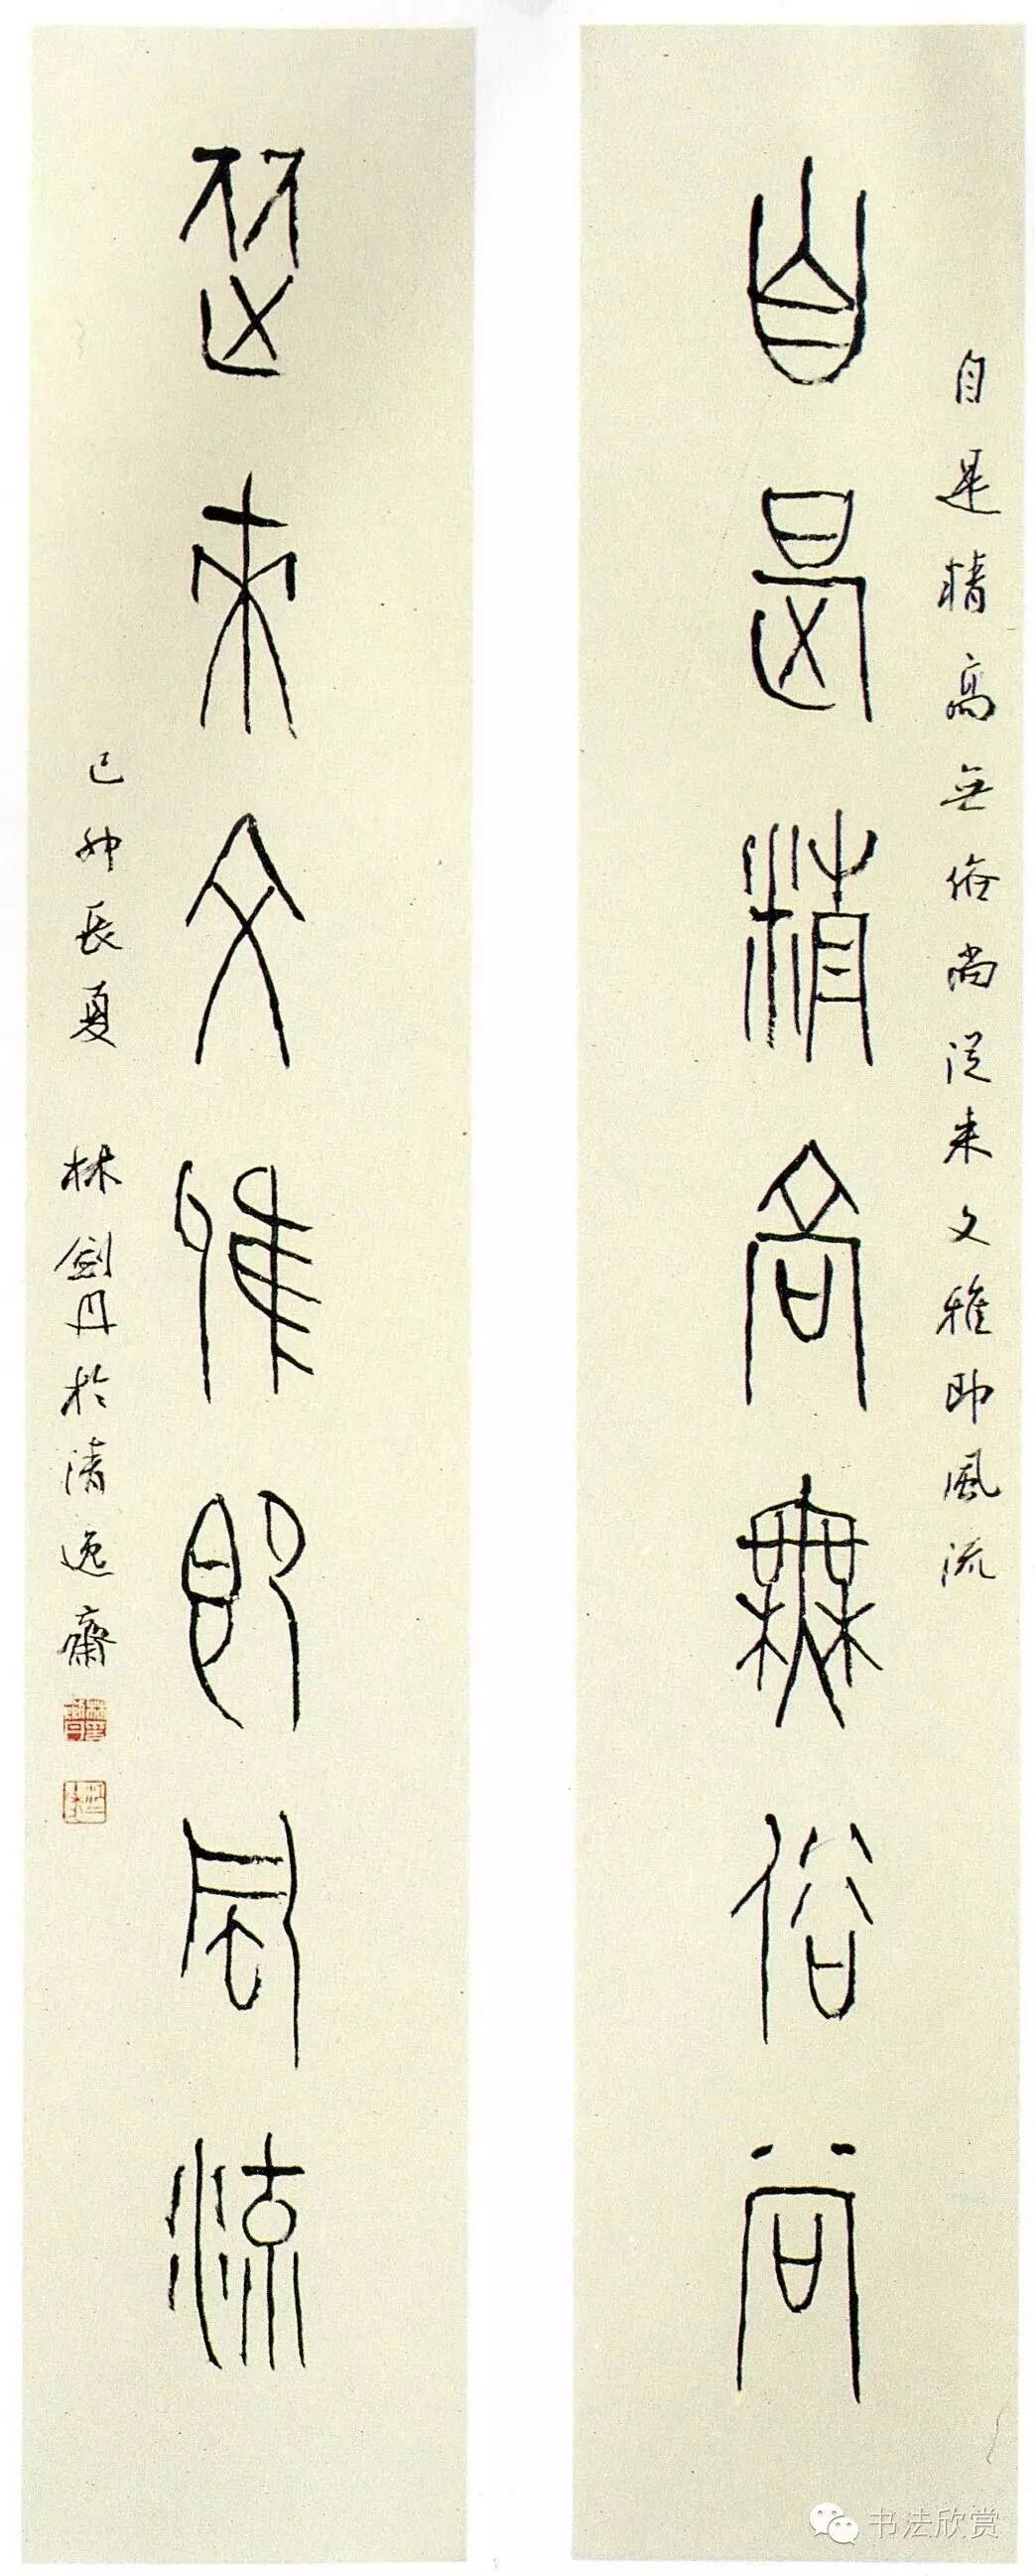 自是精高無俗尚從来文雅即風流
自是精高無俗尚
從來文雅即風流
己卯長夏 林劍丹於清逸齋
书法欣赏